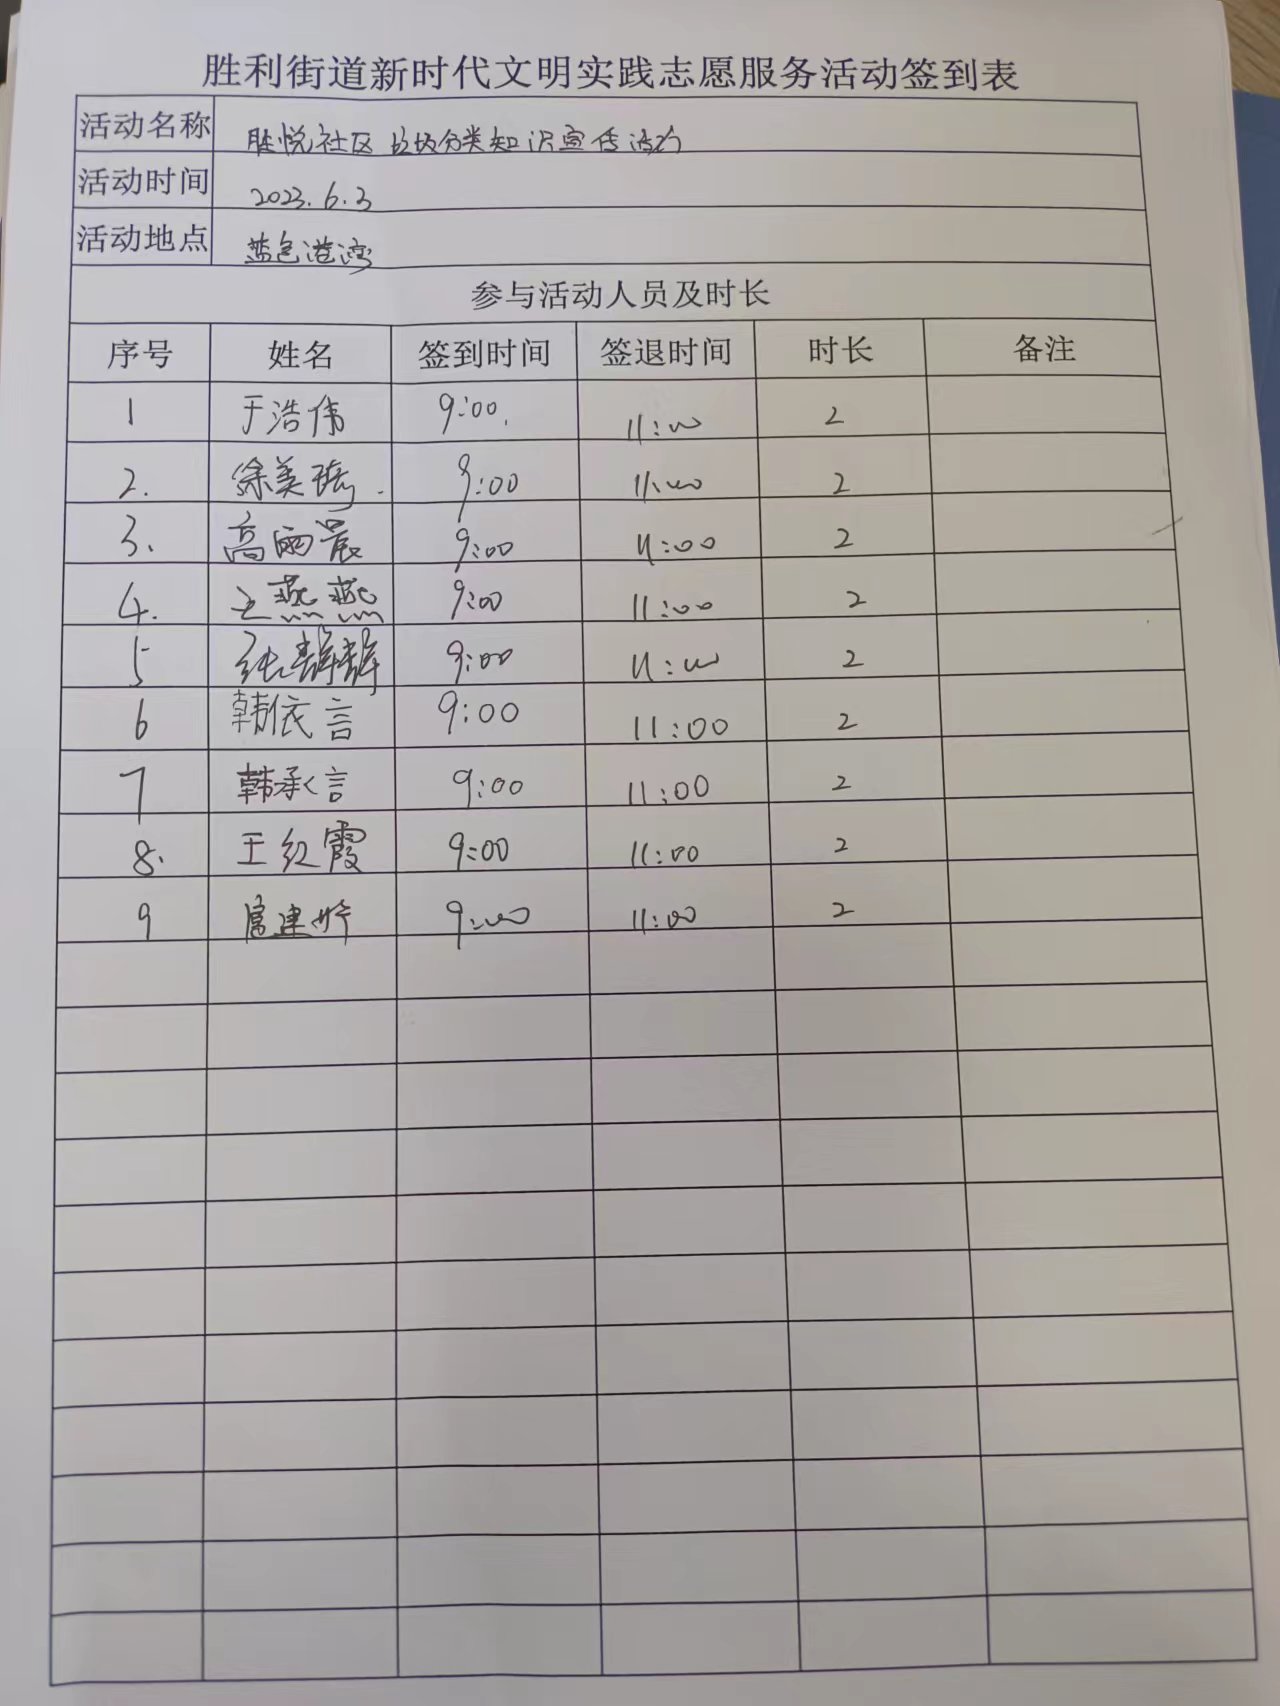 胜利街道新时代文明实践志愿服务活动签到表
活动名称 胜悦社区垃圾分类知识宣传活动
活动时间 2023.6.3
活动地点 蓝色港湾
参与活动人员及时长
序号 姓名 签到时间 签退时间 时长 备注
1 于浩伟 9:00. 11:00 2
2. 徐美琦. 9:00 11:00 2
3. 高雨晨 9:00 11:00 2
4. 王燕燕 9:00 11:00 2
5 张群群 9:00 11:00 2
6 韩依言 9:00 11:00 2
7 韩承言 9:00 11:00 2
8. 王红霞 9:00 11:00 2
9 建 9:00 11:00 2